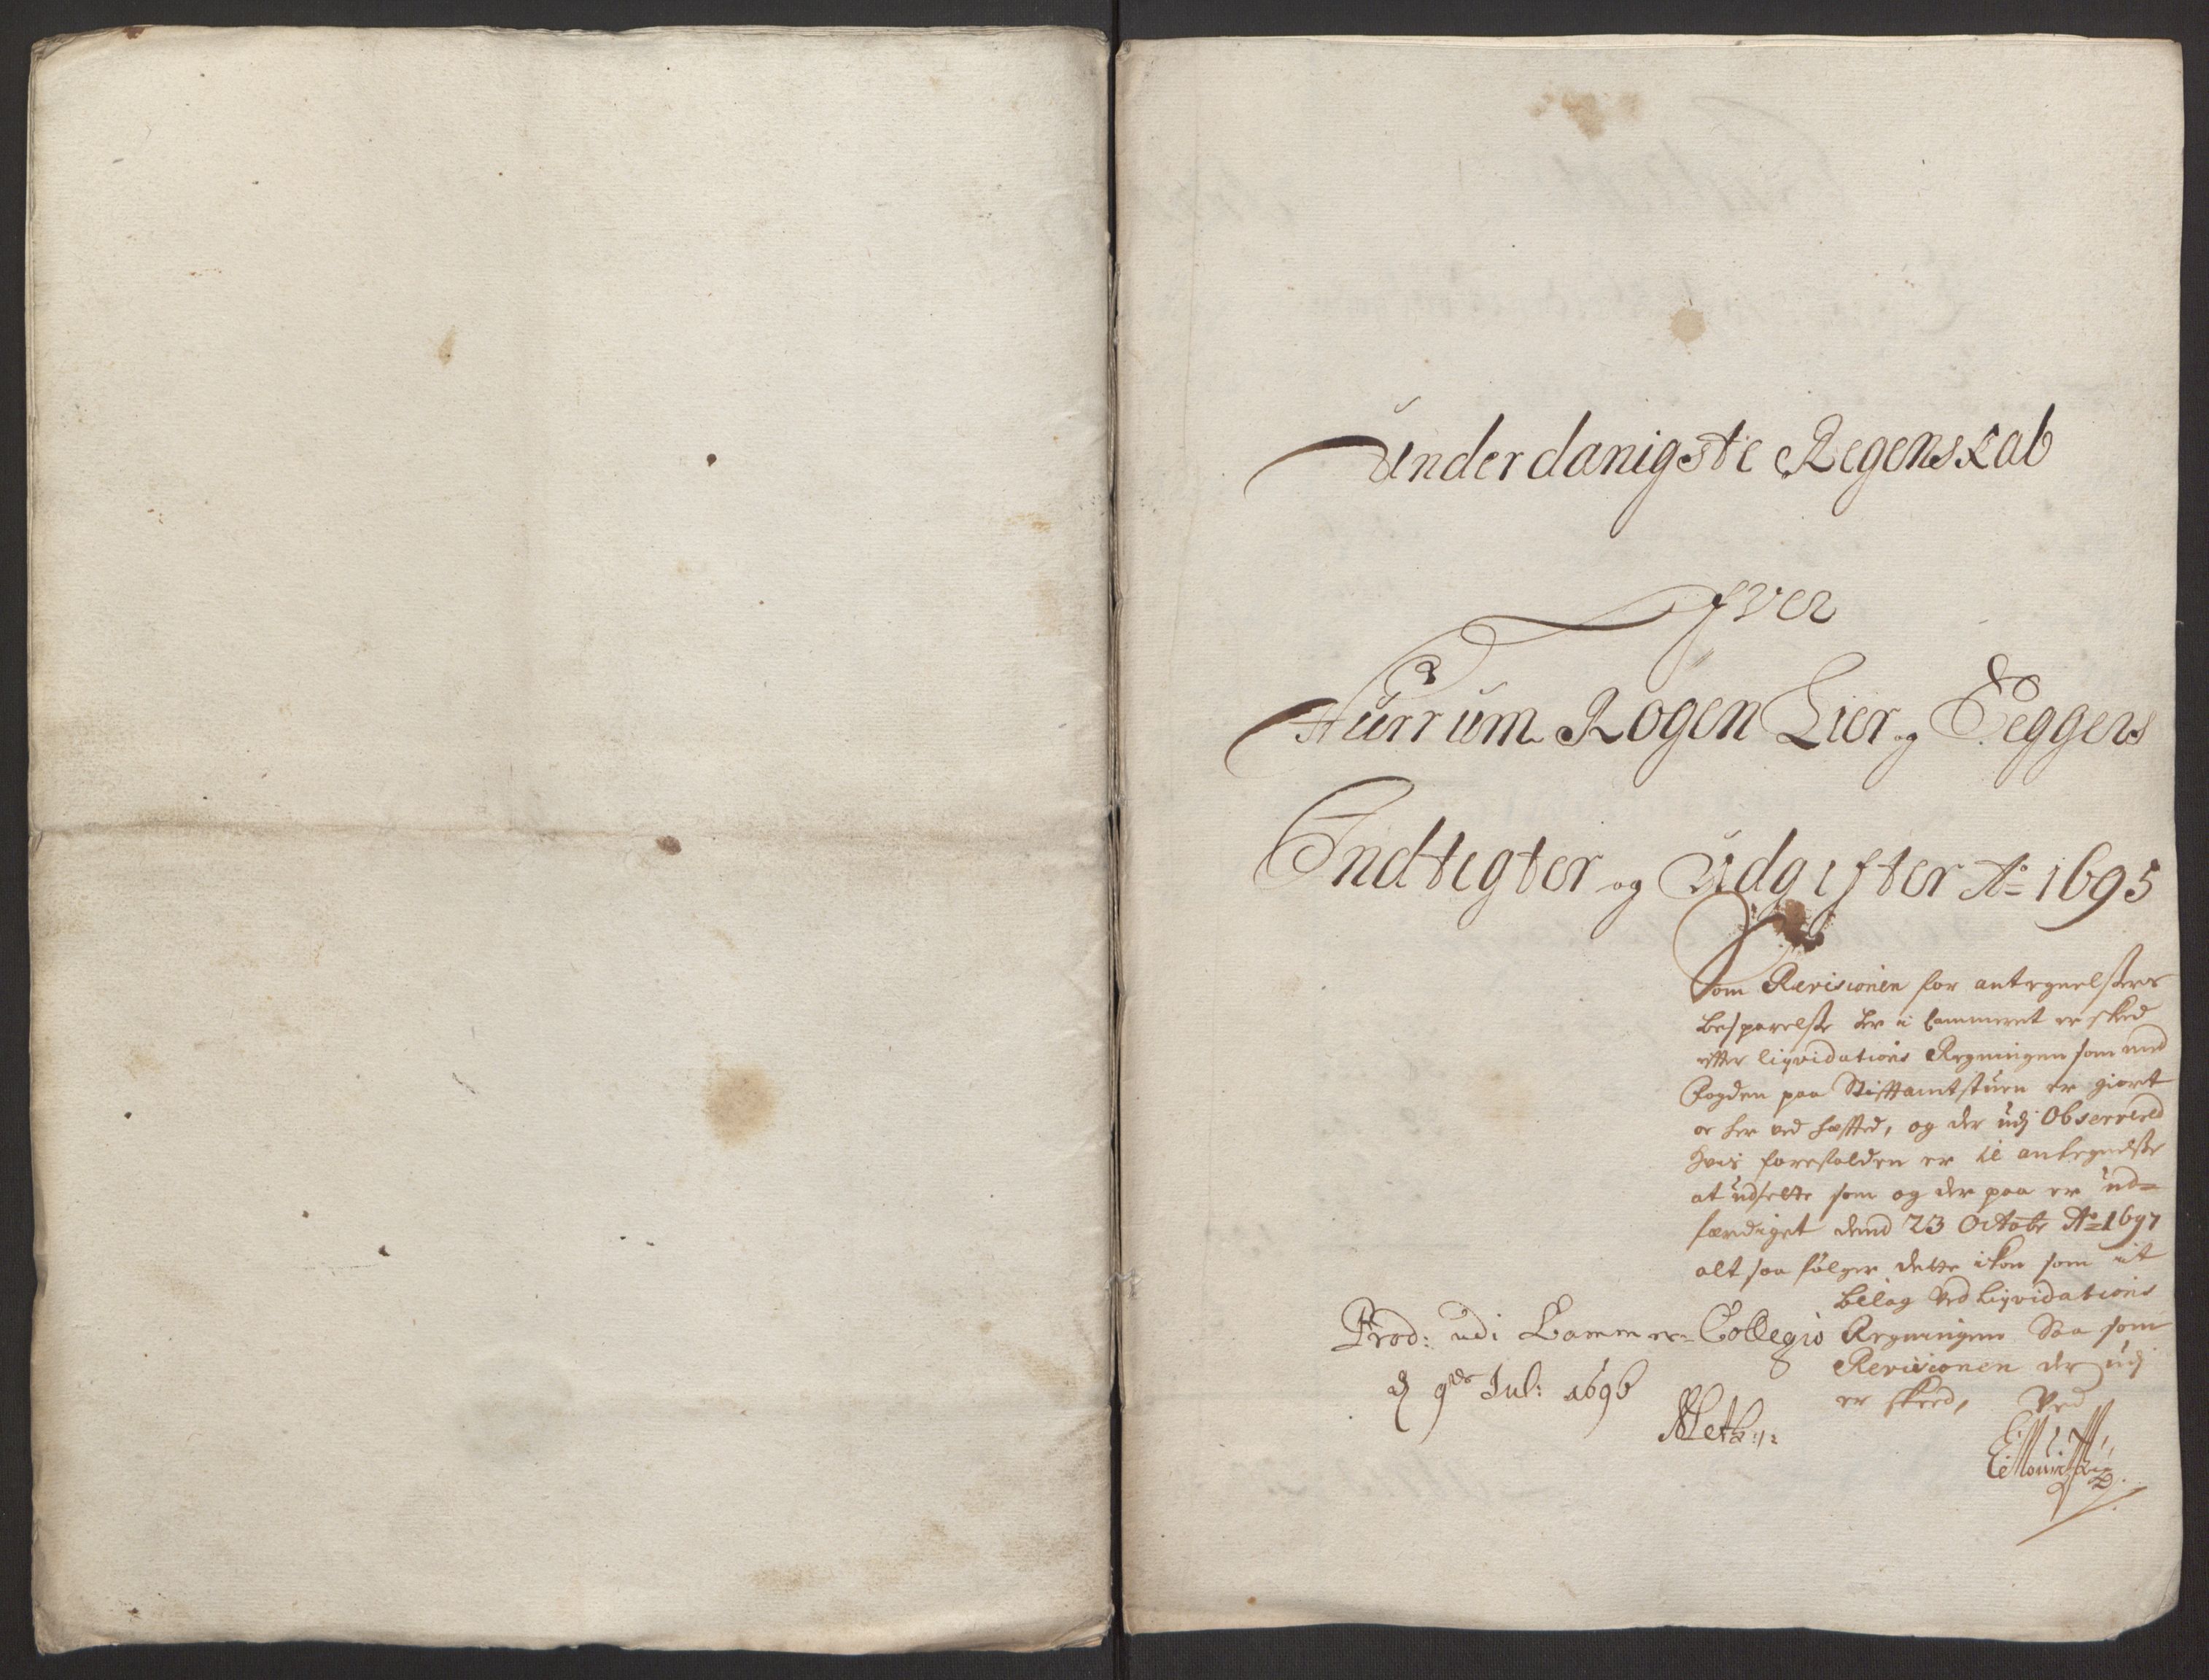 Underdanigste Regenskab
Ofver
Hurrum Rogen Lier og Eggers
Indtegter og Udgifter Ao 1695
Som Revisionen for antegnelsers
besparelse her i Cammeret er skeed
effter liqvidations Regningen som med
fogden paa Stiftamtstuen er giort
oc her ved hæfted, og der udj Observerld
hvis forefalden er til antegnelse
at udsette som og der paa er ud=
færdiget dend 23 Octobr Ao 1697
alt saa følger dette ikon som it
bilag ved liqvidations
Regningen Saa som
Revisionen der udj
er skeed, Ved
Prod: udi Cammer=Collegio
d 9de Jul: 1696